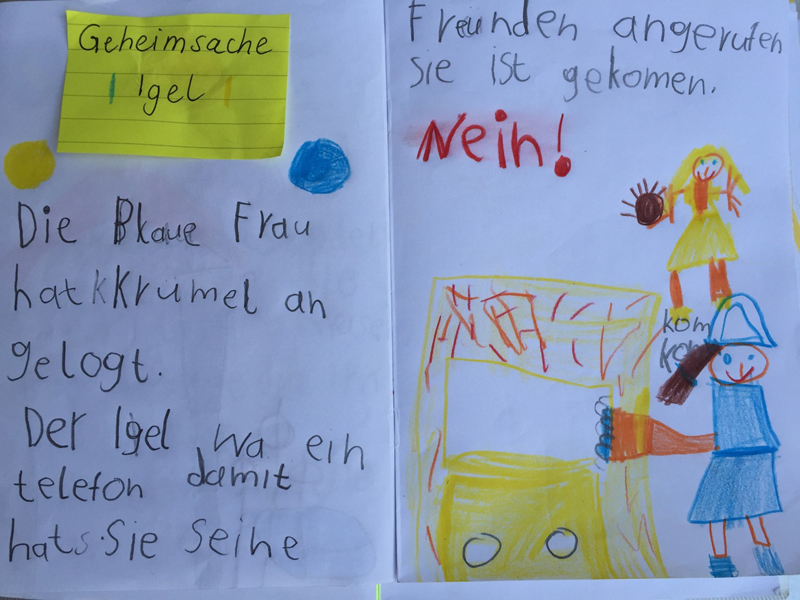 Geheimsache
Igel
Die Blaue Frau
hat Krümel an
gelogt.
Der Igel wa ein
telefon damit
hats Sie Seine
Freunden angerufen
Sie ist gekomen.
Nein!
kom
kom